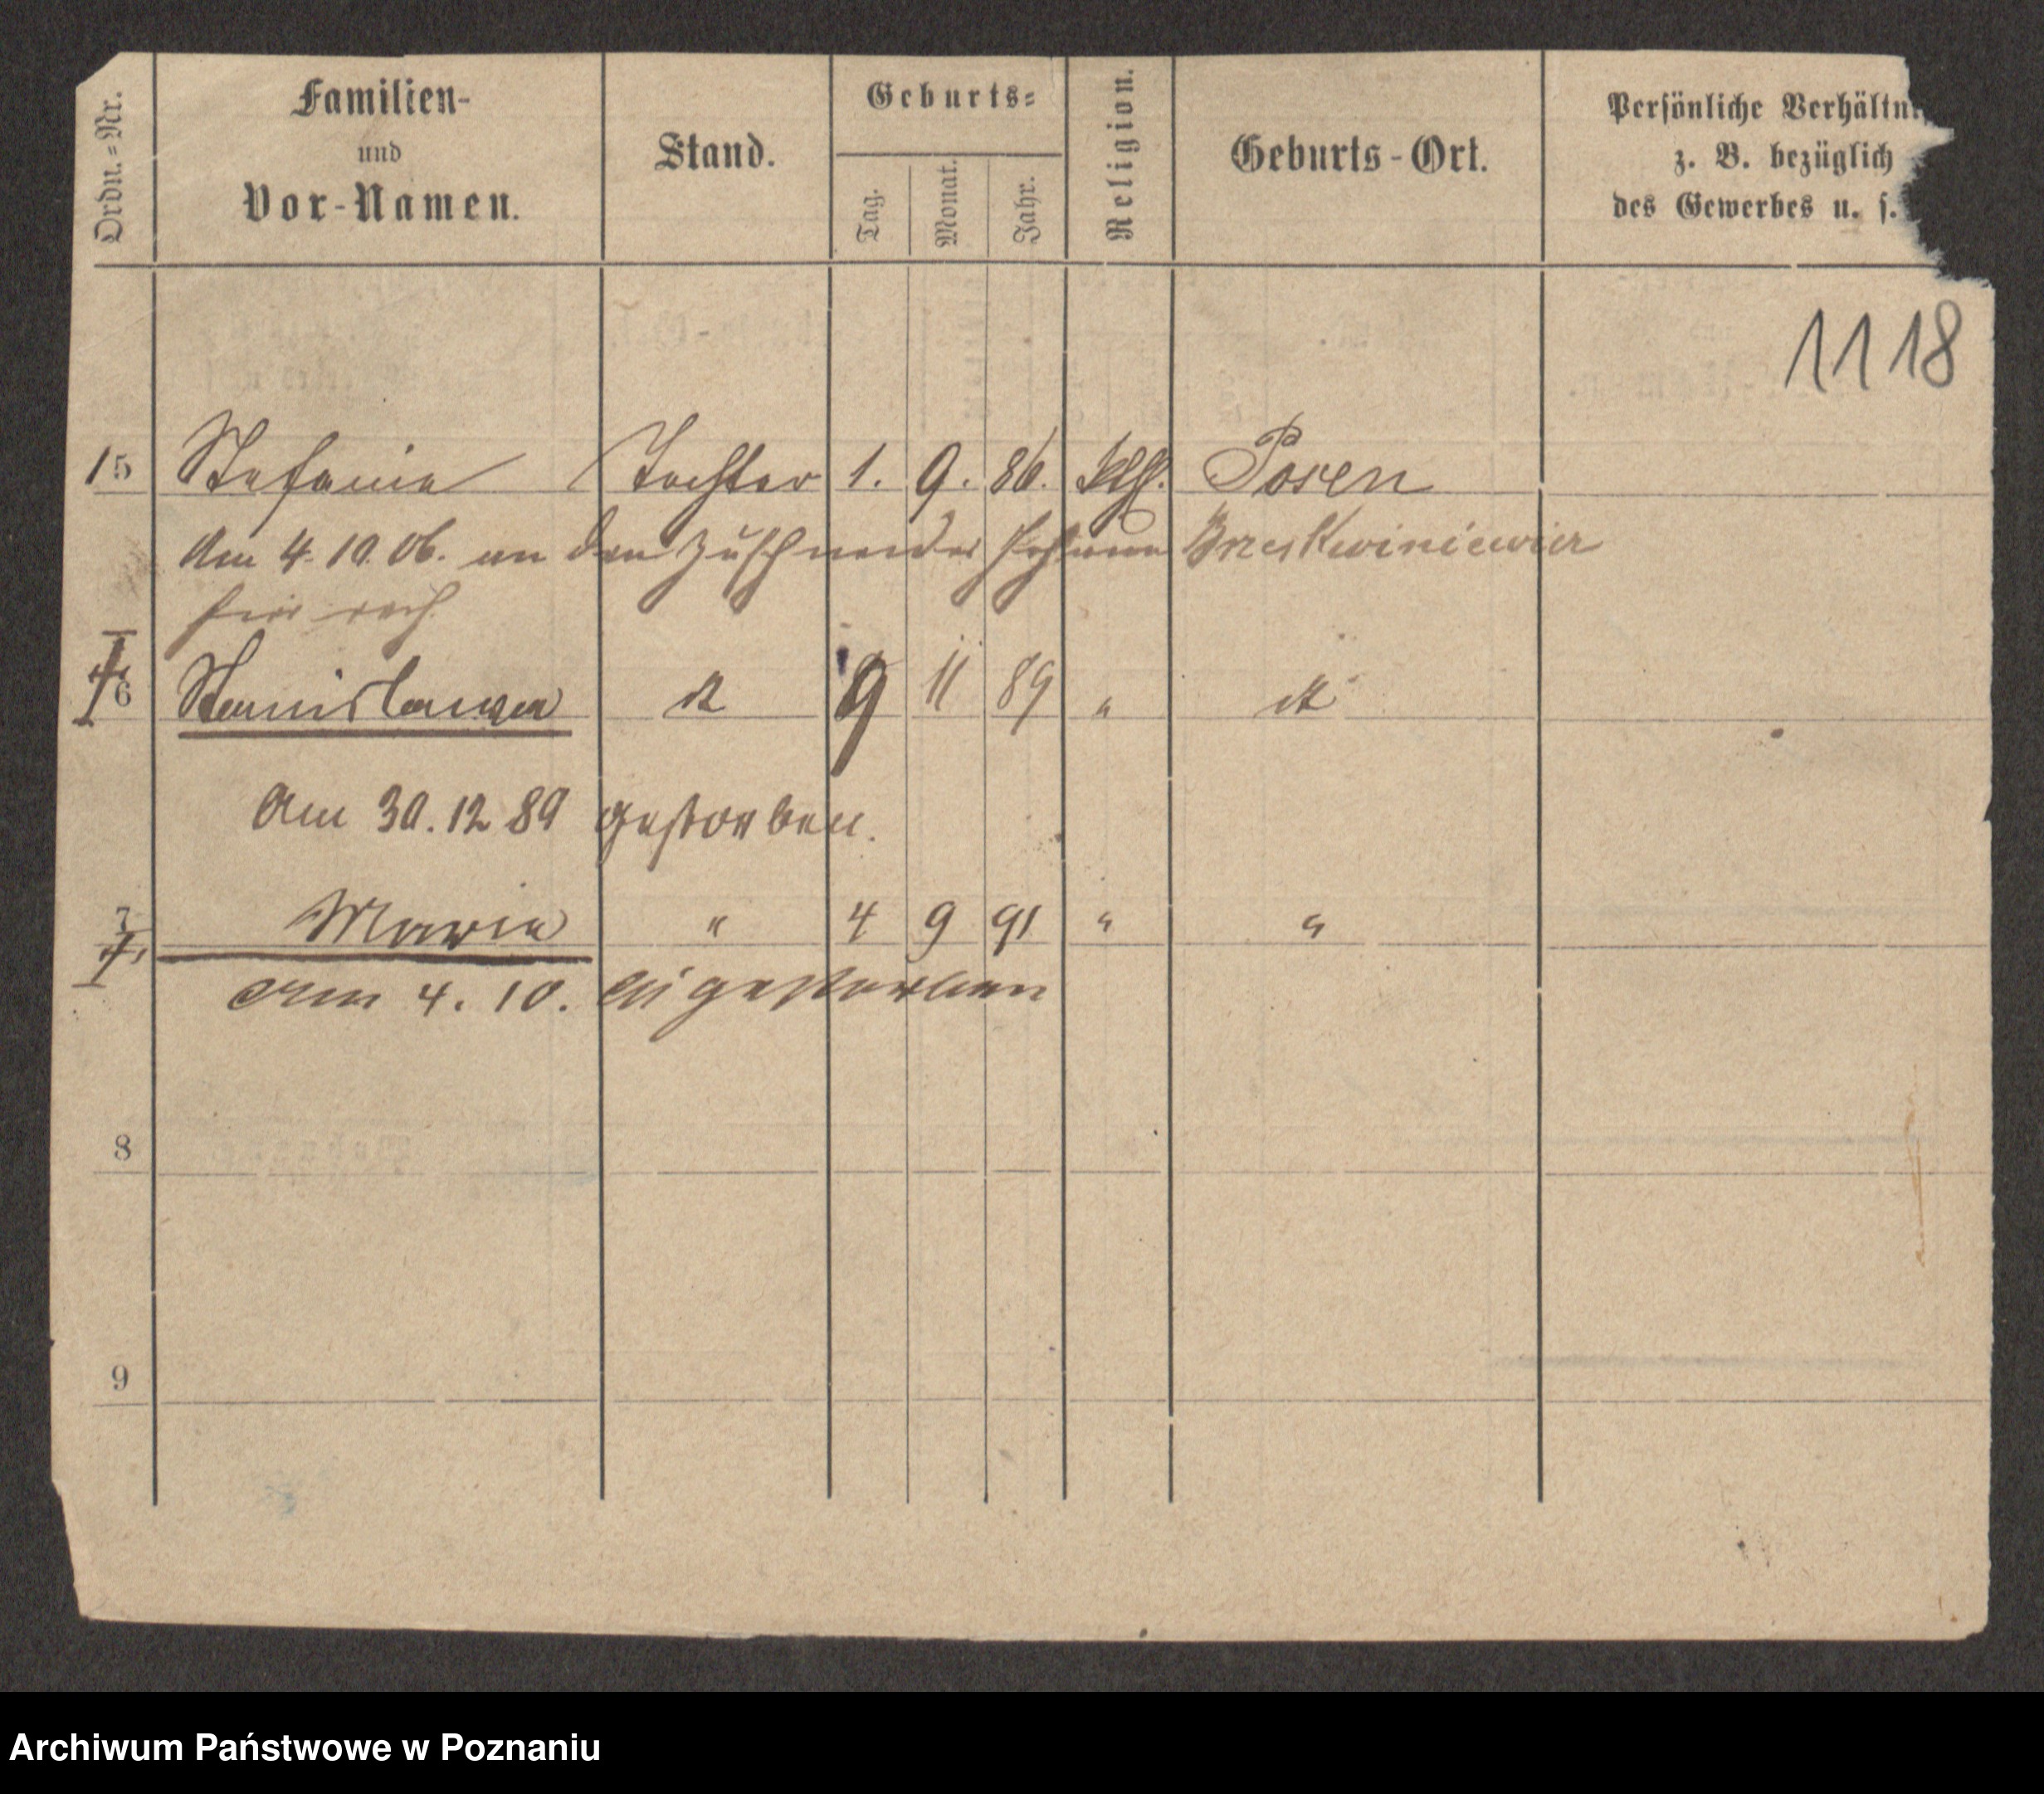 Ordn.-Nr.
Familien-
und
Vor-Namen.
Stand.
Geburts-
Tag.
Monat.
Jahr.
Religion.
Geburts-Ort.
Persönliche Verhältn
z. B. bezüglich
des Gewerbes u. s.
1118
15 Stefanie Tochter 1. 9. 86. kth. Posen
Am 4. 10. 06. an den Zuschneider Johann
6 Stanislawa 9 11 89 "
Am 30. 12 89 gestorben.
7 Maria " 4 9 91 " "
Am 4. 10. 91 gestorben
8
9
Archiwum Państwowe w Poznaniu